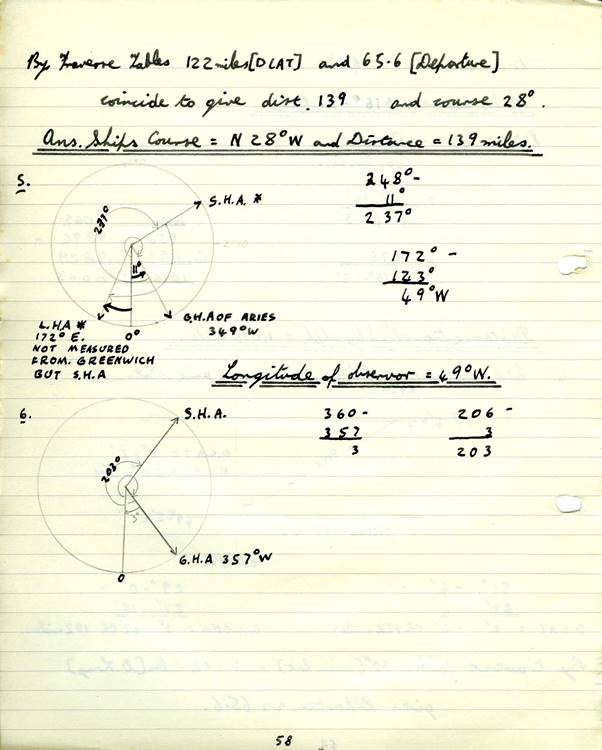 By Traverse Tables 122 miles [DLAT] and 65.6 [Departure]
coincide to give dist. 139 and course 28°.
Ans. Ships Course = N 28° W and Distance = 139 miles.
5.
237°
S.H.A. *
11°
L.H.A *
172° E.
NOT MEASURED
FROM. GREENWICH
BUT S.H.A
0°
G.H.A OF ARIES
349° W
248° -
11°
237°
172° -
123°
49° W
Longitude of observor = 49° W.
6.
S.H.A.
203°
3°
0
G.H.A 357° W
360 -
357
3
206 -
3
203
58